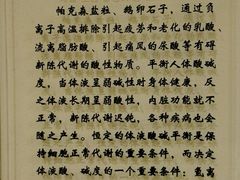 帕克森盐粒、鹅卵石子，通过负
离子高温排除引起疲劳和老化的乳酸、
游离脂肪酸、引起痛风的尿酸等有碍
新陈代谢的酸性物质。平衡人体酸碱
度，当体液呈弱碱性对身体健康，反
之体液长期呈弱酸性，内脏功能就不
正常，新陈代谢迟钝，各种疾病也会
随之产生。恒定的体液酸碱平衡是保
持细胞正常代谢的重要条件，而决定
体液酸、碱度的一个重要条件：氢离